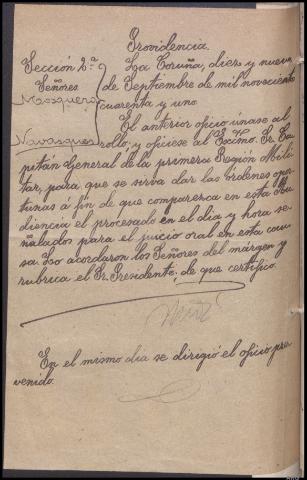 Providencia
Sección 2.ª
Señores
Mosquera
Navasqués
La Coruña, diez y nueve
de Septiembre de mil novecientos
cuarenta y uno.
El anterior oficio únase al
rollo, y ofíciese al Excmo. Sr. Ca-
pitán General de la primera Región Mili-
tar, para que se sirva dar las órdenes opor-
tunas a fin de que comparezca en esta Au-
diencia el procesado en el día y hora se-
ñalados para el juicio oral en esta cau-
sa. Lo acordaron los Señores del márgen y
rubrica el Sr. Presidente, de que certifico.
En el mismo día se dirigió el oficio pre-
venido.